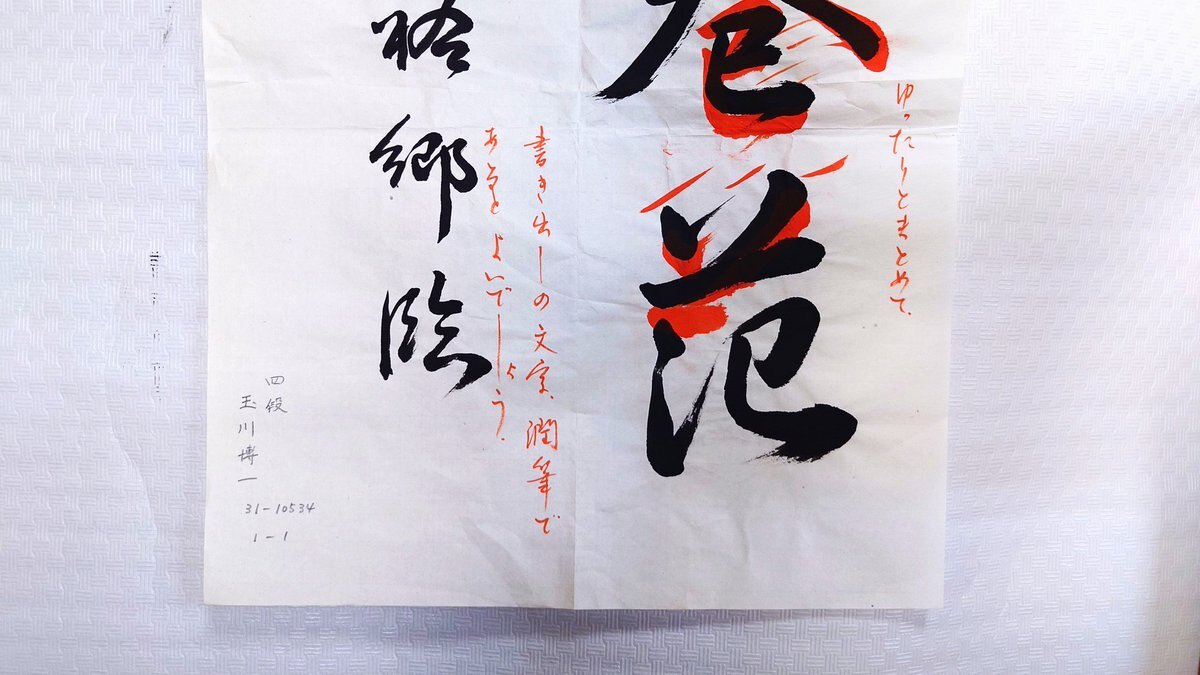 ゆったりとまとめて、
范
書き出しの文字、潤筆で
あるとよいでしょう。
裕郷臨
四段
玉川博一
31-10534
1-1